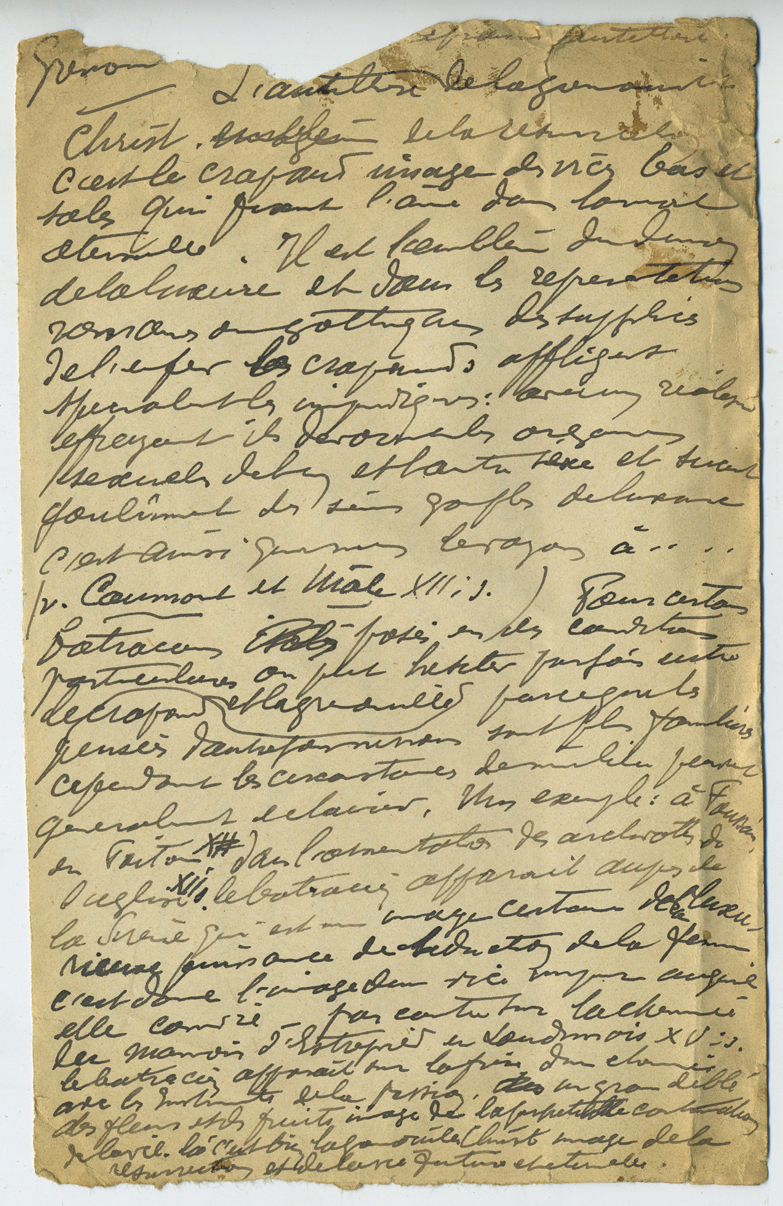 Grenouil
L'antithèse de la grenouille
Christ. emblème de la résurrection
c'est le crapaud image des vices bas et
sales qui fixent l'âme dans la mort
éternelle. Il est l'emblème du démon
de la luxure et dans les représentations
romanes ou gothiques des supplices
de l'enfer les crapauds affligent
spécialement les impudiques: avec un réalisme
effrayant ils dévorent les organes
sexuels de l'un et l'autre sexe et sucent
goulûment des seins gonflés de luxure
c'est ainsi que nous le voyons à ....
(v. Caumont et Mâle XII: s. ) Pour certains
batraciens posés en des conditions
particulières on peut hésiter parfois entre
le crapaud et la grenouille parce que les
pensés d'autrefois nous sont plus familières
cependant les circonstances de milieu peuvent
généralement éclairer. Un exemple: à
en Poitou dans l'ornementation des archivoltes de
l'église XII s. le batracien apparaît auprès de
la Sirène qui est une image certaine de la luxu-
rieuse puissance de séduction de la femme
c'est donc l'image d'un vice impur auquel
elle convie - par contre sur la cheminée
du manoir d'Estrepied en Loudunois XV: s.
le batracien apparaît sur la frise d'une cheminée
avec les instruments de la passion, un grain de blé
des fleurs et des fruits, image de la perpétuelle continuation
de la vie. là c'est bien la grenouille Christ image de la
résurrection et de la vie future et éternelle.